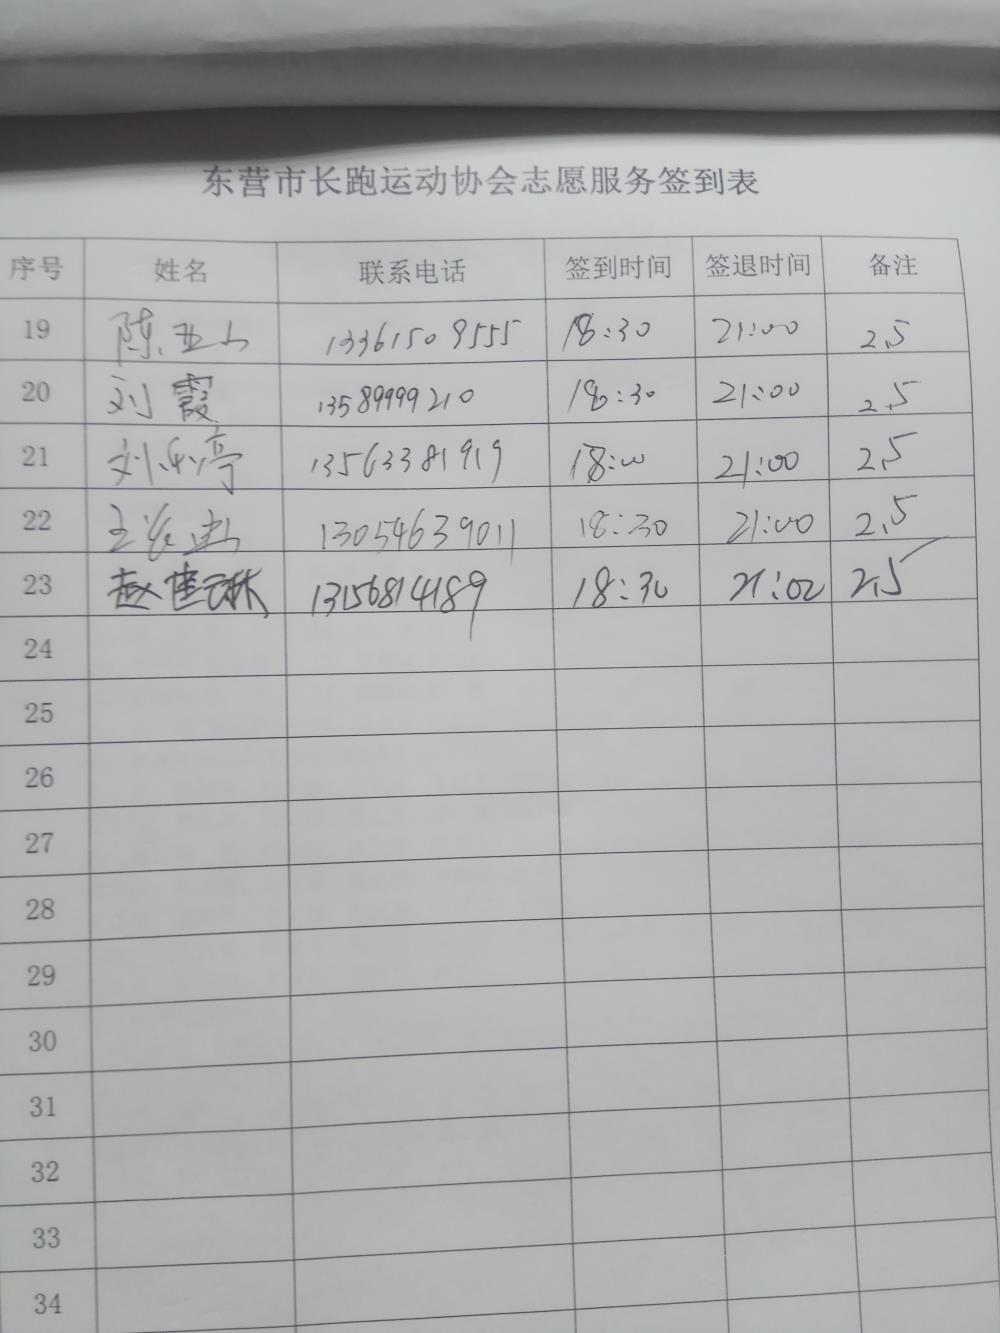 东营市长跑运动协会志愿服务签到表
序号 姓名 联系电话 签到时间 签退时间 备注
19 陈亚山 13361509555 18:30 21:00 2.5
20 刘霞 13589999210 18:30 21:00 2.5
21 刘利亭 13563381919 18:00 21:00 2.5
22 王 13054639011 18:30 21:00 2.5
23 赵 13156814189 18:30 21:02 2.5
24
25
26
27
28
29
30
31
32
33
34